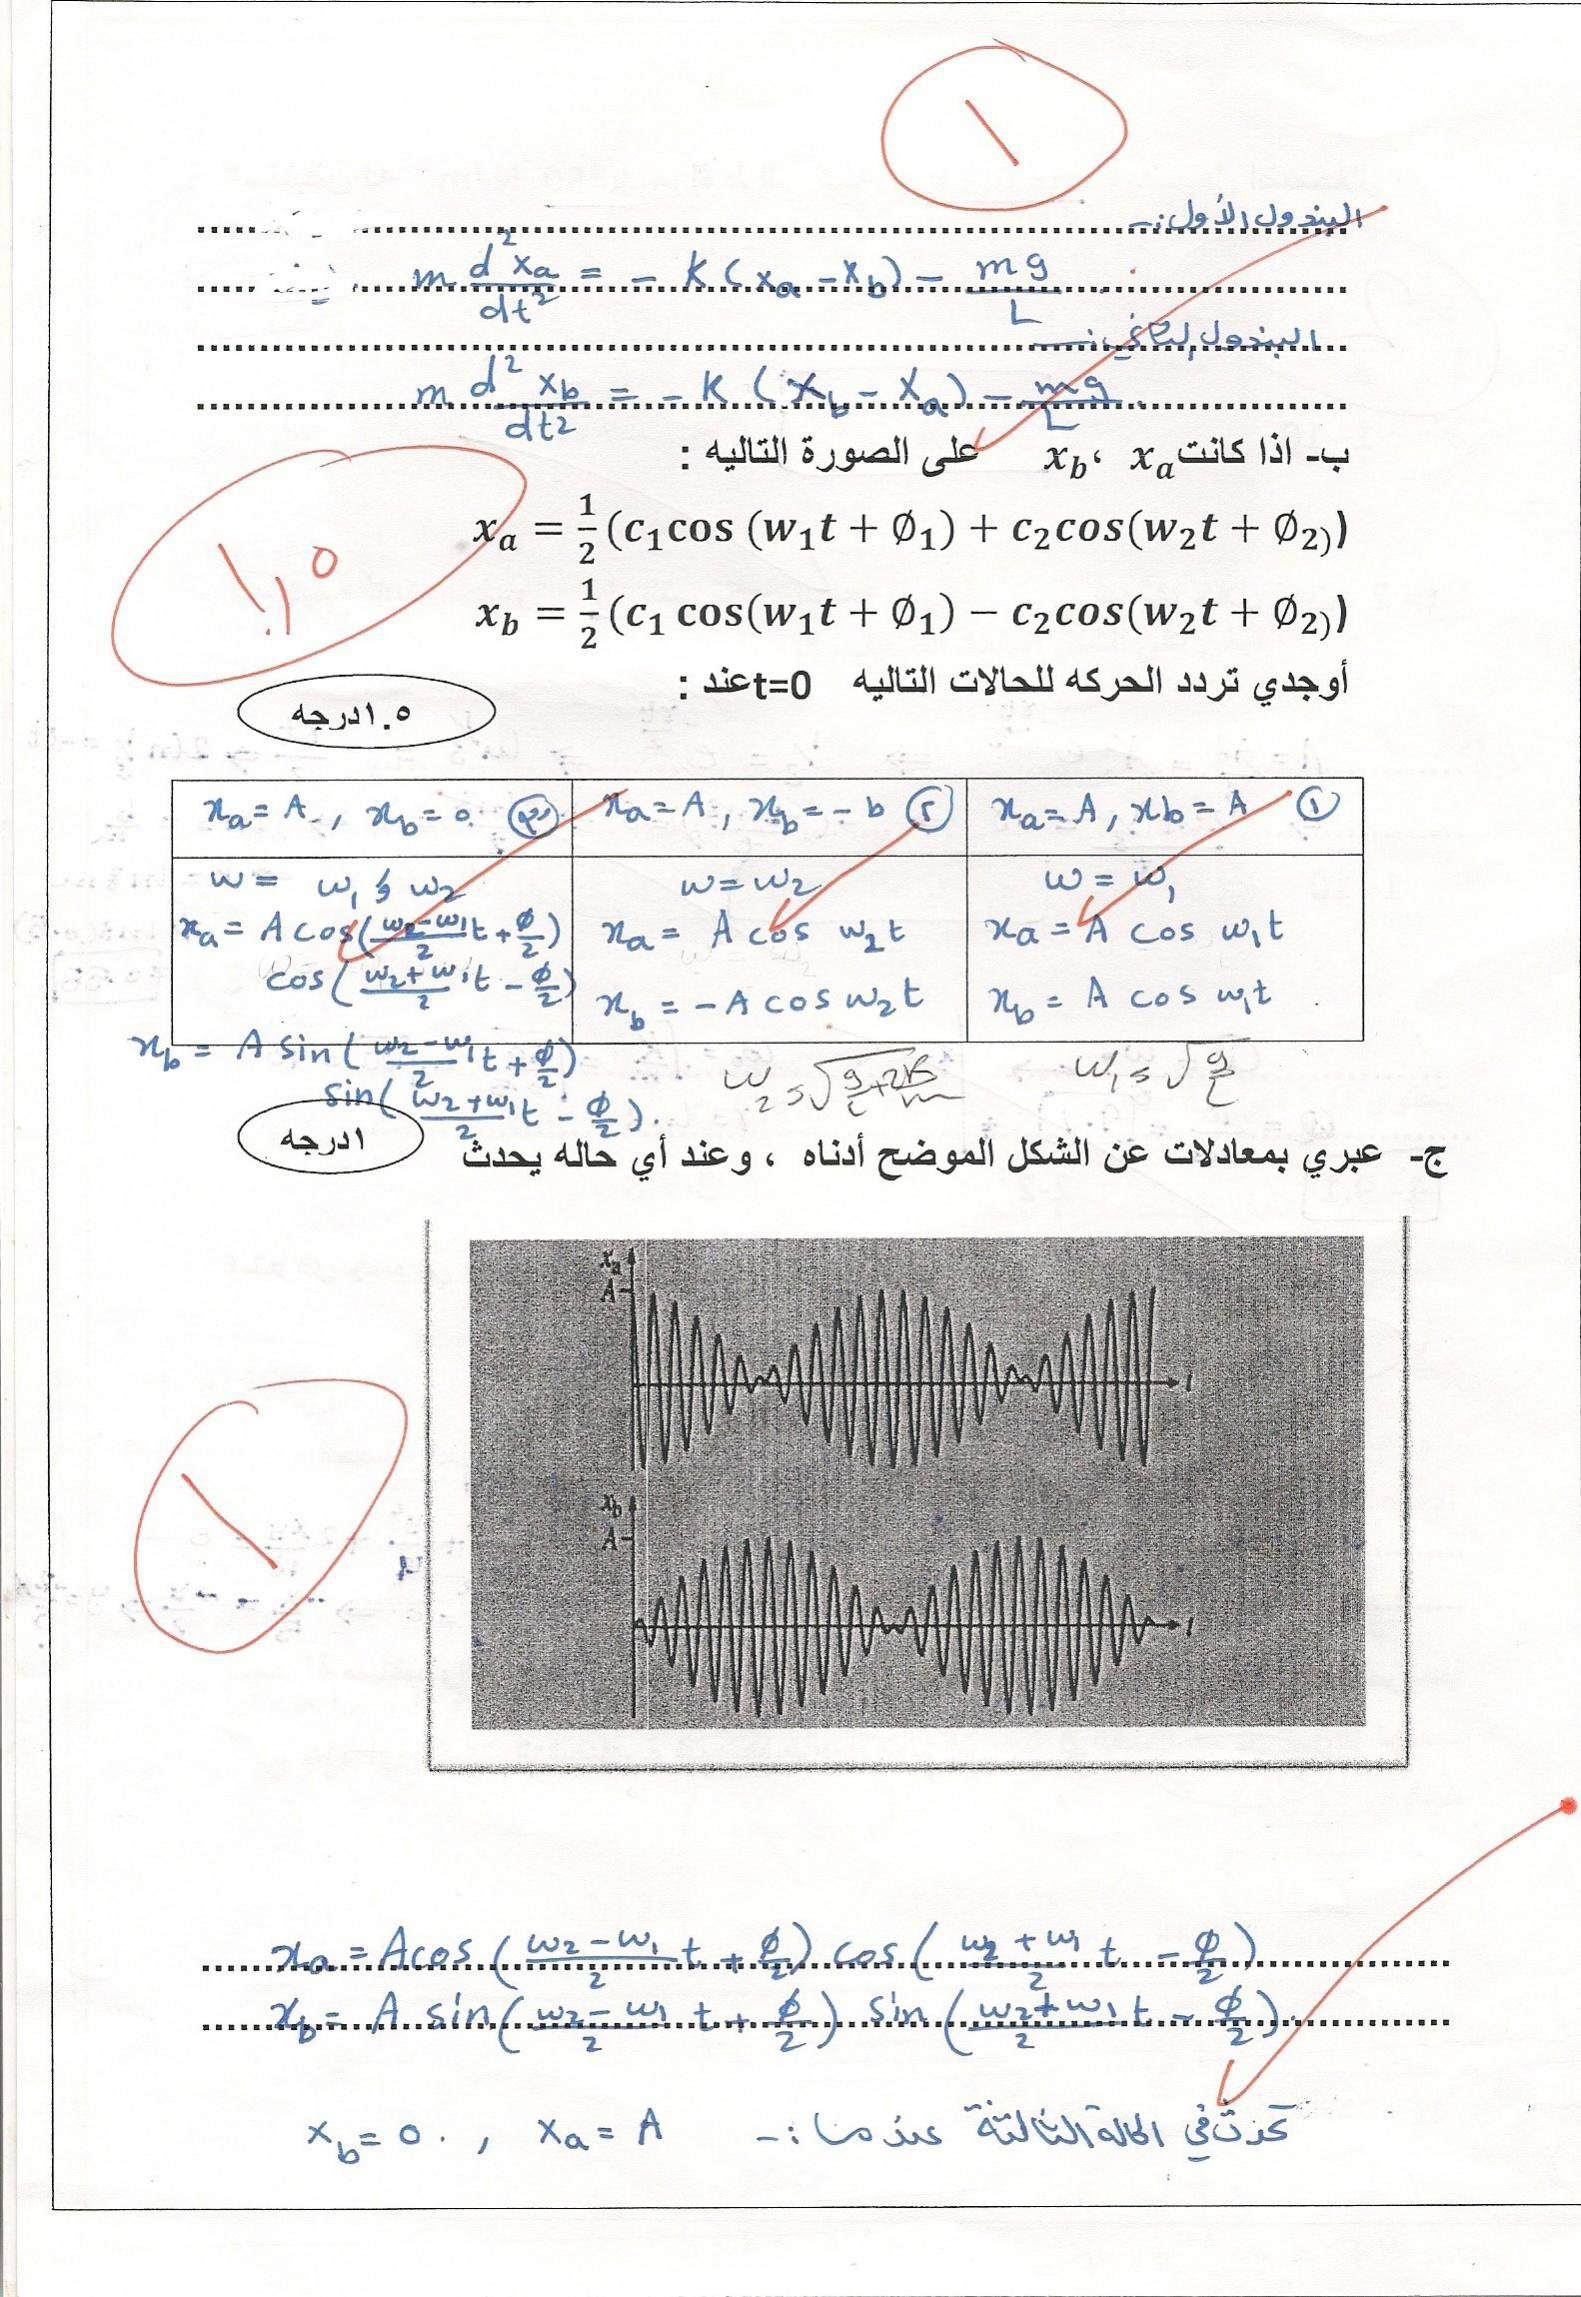 ١
البندول الأول:-
m d²xa/dt² = - K (xa - xb) - mg/L
البندول الثاني:-
m d² xb/dt2 = - K (xb - xa) - mg/L
ب- اذا كانت xa ،xb على الصورة التاليه :
xₐ = 1/2 (c₁cos (w₁t + Ø₁) + c₂cos(w₂t + Ø₂₎)
x_b = 1/2 (c₁ cos(w₁t + Ø₁) − c₂cos(w₂t + Ø₂₎)
١,٥
أوجدي تردد الحركه للحالات التاليه t=0عند :
١.٥درجه
xa = A , xb = A ①
xa = A , xb = - b ②
xa = A , xb = 0 ③
w = w₁
xa = A cos w₁t
xb = A cos w₁t
w = w₂
xa = A cos w₂t
xb = - A cos w₂t
w = w₁ و w₂
xa = A cos(w₂-w₁/2 t + φ/2)
cos(w₂+w₁/2 t - φ/2)
xb = A sin(w₂-w₁/2 t + φ/2)
sin(w₂+w₁/2 t - φ/2).
w₁ = √g/L
w₂ = √g/L + 2K/m
ج- عبري بمعادلات عن الشكل الموضح أدناه ، وعند أي حاله يحدث
١درجه
xa
A
t
xb
A
t
١
xa = A cos (w₂ - w₁/2 t + φ/2) cos (w₂ + w₁/2 t - φ/2)
xb = A sin (w₂ - w₁/2 t + φ/2) sin (w₂+w₁/2 t - φ/2).
تحدث في الحالة الثالثة عندما :- xa = A , xb = 0.